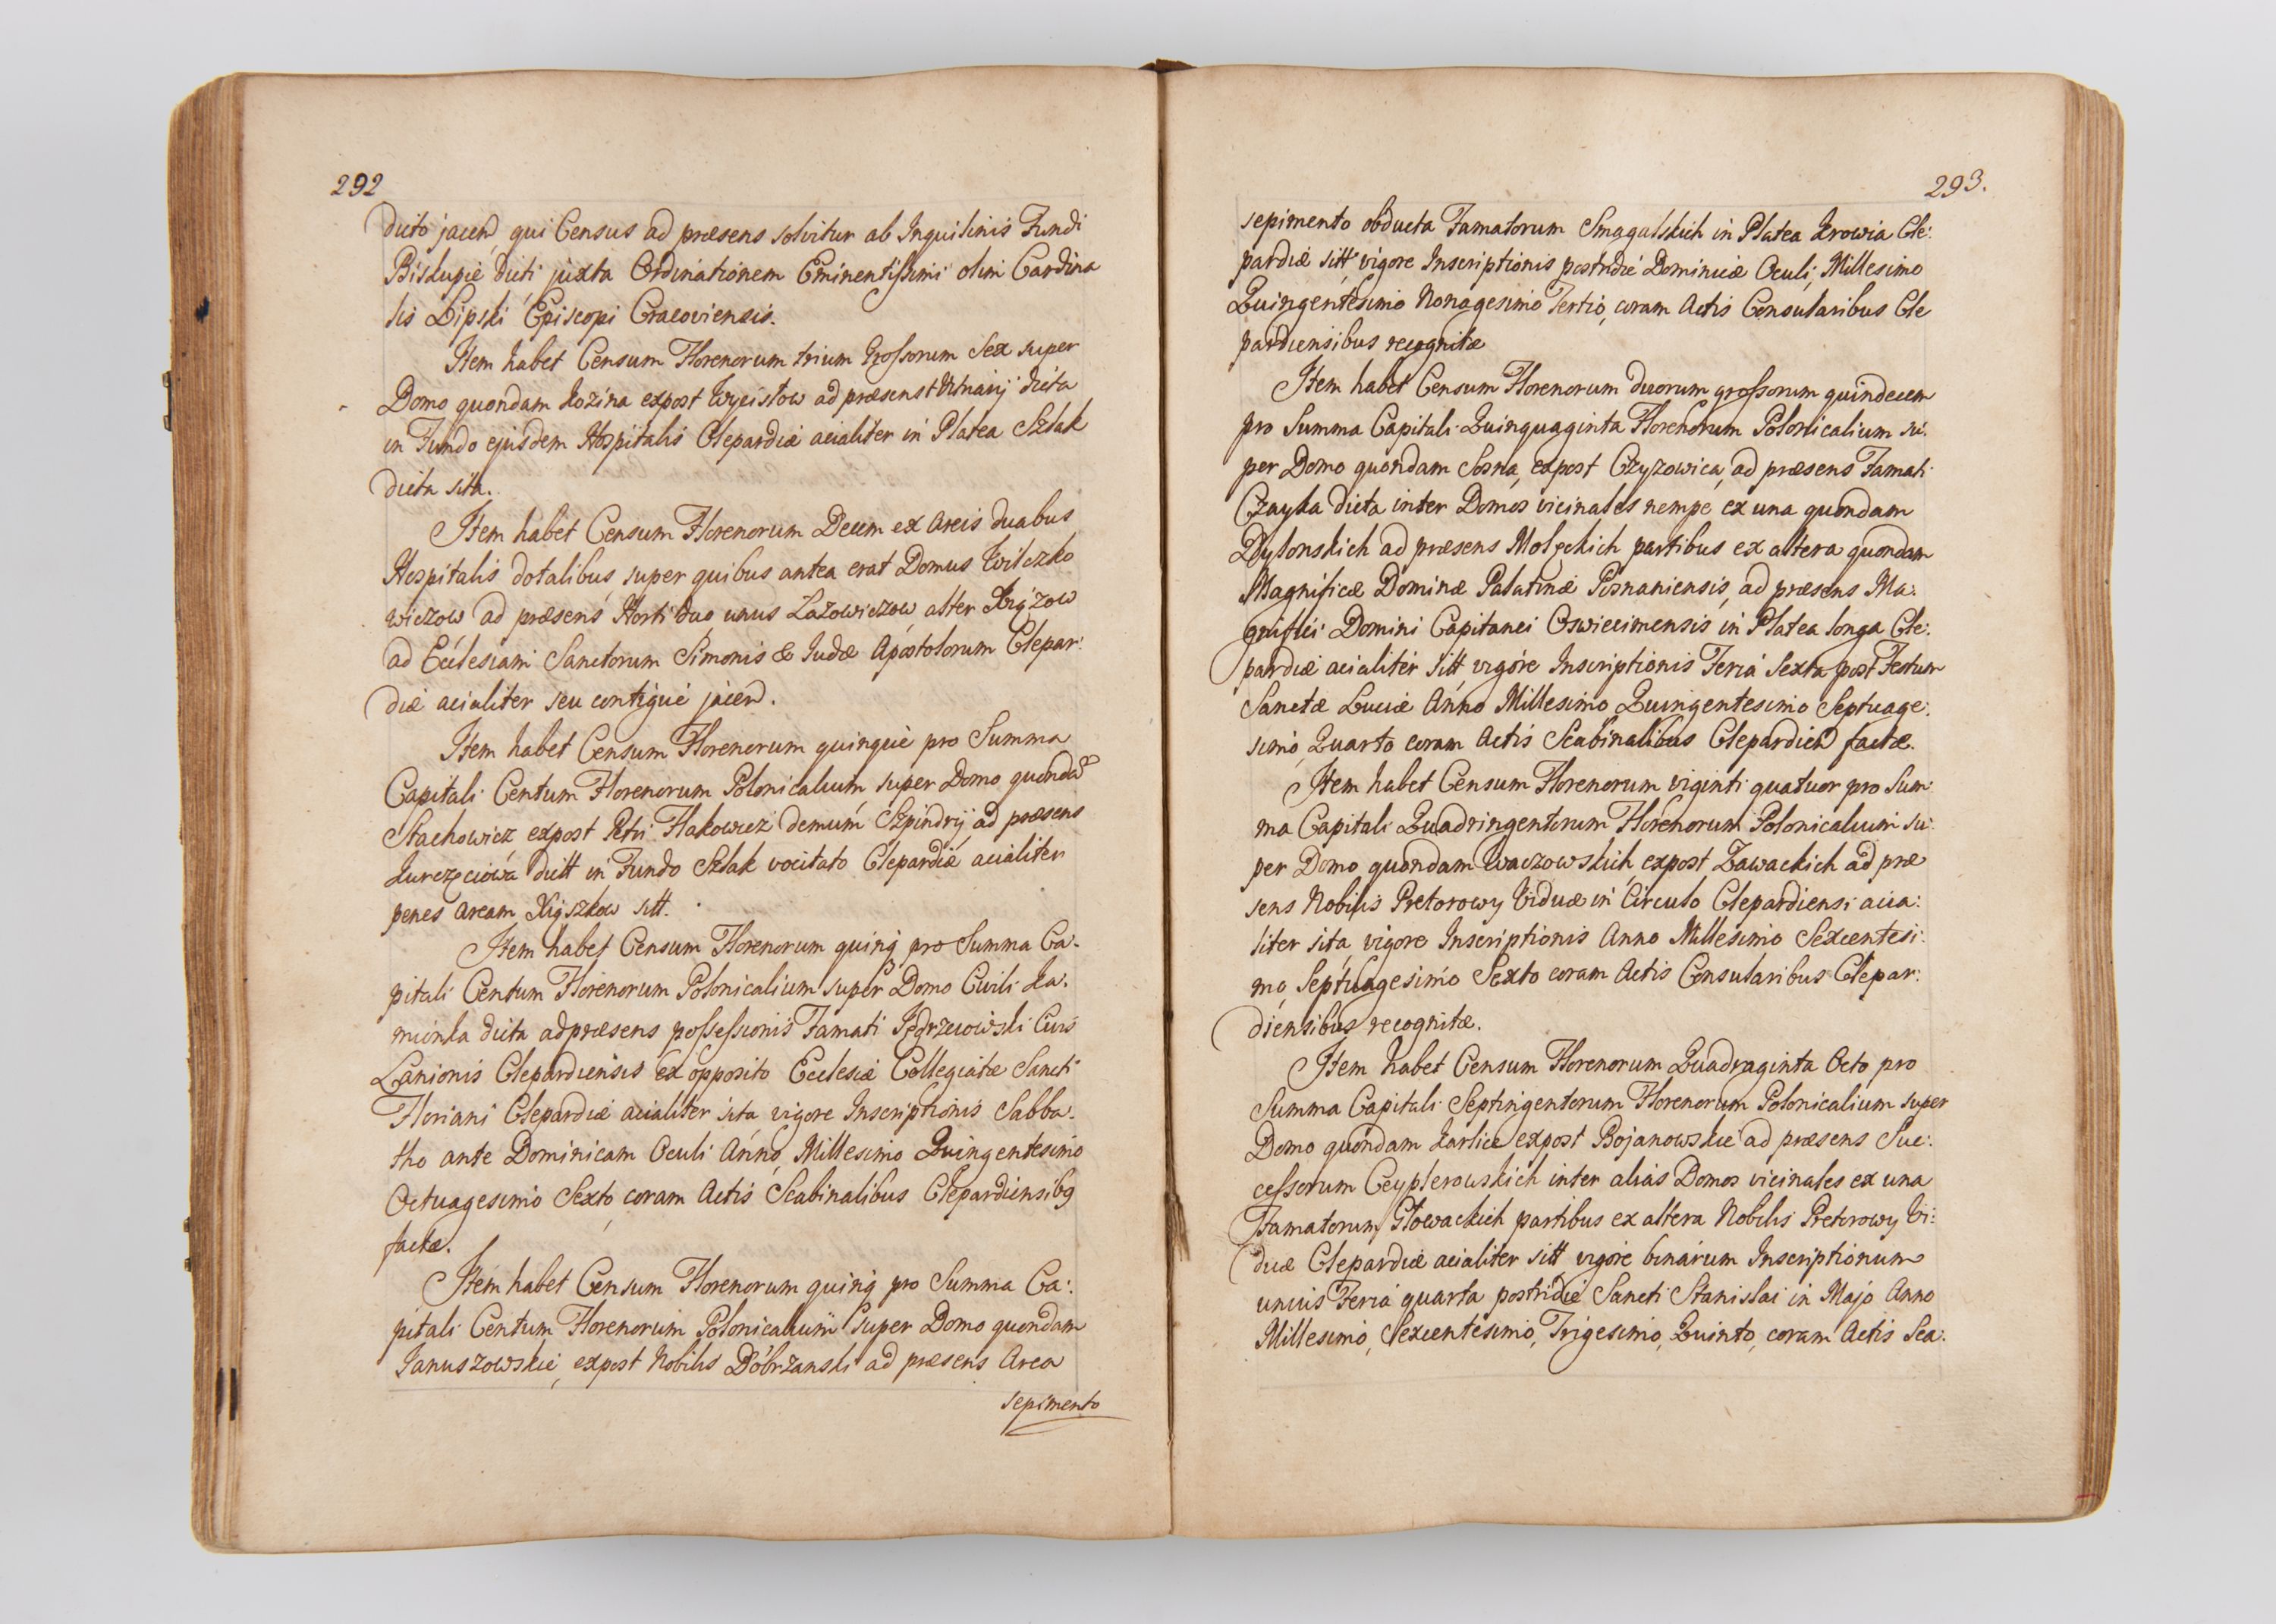 292
dicto jacen, qui Census ad præsens solvitur ab Inquilinis Fundi
Biskupie dicti juxta Ordinationem Eminentissimi olim Cardina
lis Lipski Episcopi Cracoviensis.
Item habet Censum Florenorum trium Grossorum Sex super
Domo quondam Kozina expost Wycisłow ad præsens dicta
in Fundo ejusdem Hospitalis Clepardiæ acialiter in Platea Szlak
dicta sita.
Item habet Censum Florenorum Decem ex Areis duabus
Hospitalis dotalibus super quibus antea erat Domus Wilczko
wiczow ad præsens Horti duo, unus Lazowiczow, alter Xiązow
ad Ecclesiam Sanctorum Simonis & Judæ Apostolorum Clepar:
diæ acialiter seu contigue jacen.
Item habet Censum Florenorum quinque pro Summa
Capitali Centum Florenorum Polonicalium super Domo quonda
Stachowicz expost Petri Hakowicz demum Szpindrÿ ad præsens
Kurczęciowa ditt in Fundo Szlak vocitato Clepardiæ acialiter
penes Aream Xięszkow sitt.
Item habet Censum Florenorum quinq pro Summa Ca-
pitali Centum Florenorum Polonicalium super Domo Civili Ka-
mionka dicta ad præsens possessionis Famati Jędrzeiowski Civis
Lanionis Clepardiensis ex opposito Ecclesiæ Collegiatæ Sancti
Floriani Clepardiæ acialiter sita vigore Inscriptionis Sabba-
tho ante Dominicam Oculi Anno, Millesimo Quingentesimo
Octuagesimo Sexto, coram Actis Scabinalibus Clepardiensibq
factæ.
Item habet Censum Florenorum quinq pro Summa Ca:
pitali Centum Florenorum Polonicalium super Domo quondam
Januszowskie, expost Nobilis Dobrzanski ad præsens Area
sepimento
293.
sepimento obducta Famatorum Smagalskich in Platea Krowia Cle:
pardiæ sitt vigore Inscriptionis postridie Dominicæ Oculi, Millesimo
Quingentesimo Nonagesimo Tertio, coram Actis Consularibus Cle
pardiensibus recognitæ
Item habet Censum Florenorum duorum grossorum quindecem
pro Summa Capitali Quinquaginta Florenorum Polonicalium su:
per Domo quondam Sosna, expost Czyzowica, ad præsens Famati
Czayka dicta inter Domos vicinales nempe ex una quondam
Dylonskich ad præsens Molęckich partibus ex altera quondam
Magnificæ Dominæ Palatinæ Posnaniensis, ad præsens Ma:
gnifici Domini Capitanei Oswiecimensis in Platea longa Cle:
pardiæ acialiter sitt, vigore Inscriptionis Feria Sexta post Festum
Sanctæ Luciæ Anno Millesimo Quingentesimo Septuage:
simo, Quarto coram Actis Scabinalibus Clepardien factæ.
Item habet Censum Florenorum viginti quatuor pro Sum
ma Capitali Quadringentorum Florenorum Polonicalium su:
per Domo quondam Waczowskich, expost Zawackich ad præ
sens Nobilis Pretorowy Viduæ in Circulo Clepardiensi acia:
liter sita, vigore Inscriptionis Anno Millesimo Sexcentesi:
mo, Septuagesimo Sexto coram Actis Consularibus Clepar:
diensibus recognitæ.
Item habet Censum Florenorum Quadraginta Octo pro
Summa Capitali Septingentorum Florenorum Polonicalium super
Domo quondam Karlice expost Bojanowskie ad præsens Suc:
cessorum Ceyplerowskich inter alias Domos vicinales ex una
Famatorum Głowackich partibus ex altera Nobilis Pretorowy Vi:
duæ Clepardiæ acialiter sitt, vigore binarum Inscriptionum
unius Feria quarta postridie Sancti Stanislai in Majo Anno
Millesimo, Sexcentesimo, Trigesimo, Quinto, coram Actis Sca: